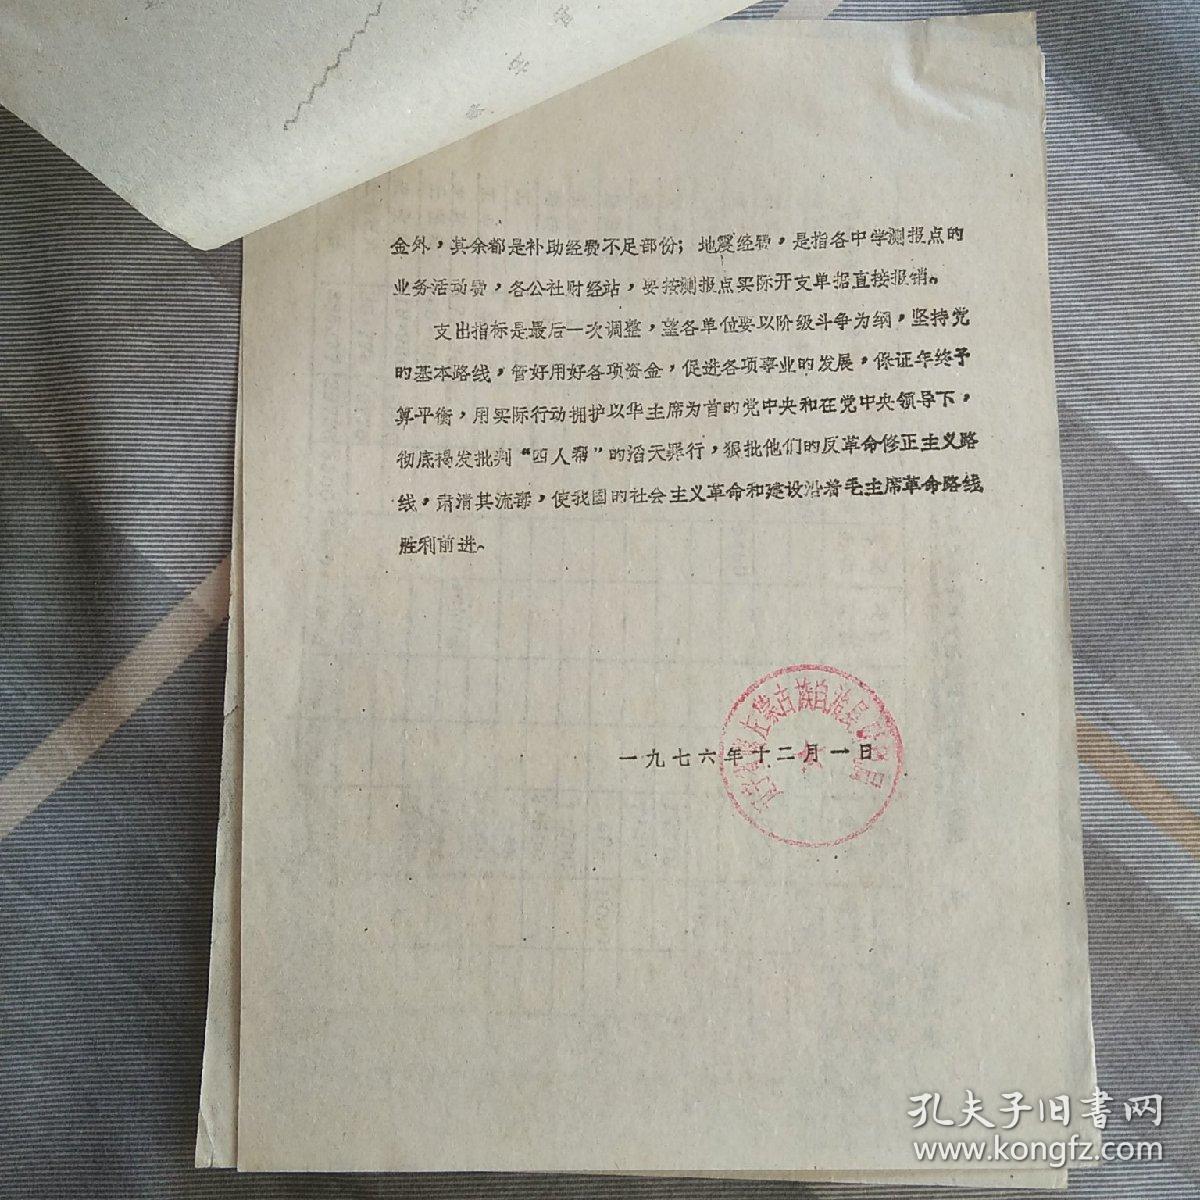 金外，其余都是补助经费不足部份；地震经费，是指各中学测报点的
业务活动费，各公社财经站，要按测报点实际开支单据直接报销。
支出指标是最后一次调整，望各单位要以阶级斗争为纲，坚持党
的基本路线，管好用好各项资金，促进各项事业的发展，保证年终予
算平衡，用实际行动拥护以华主席为首的党中央和在党中央领导下，
彻底揭发批判“四人帮”的滔天罪行，狠批他们的反革命修正主义路
线，肃清其流毒，使我国的社会主义革命和建设沿着毛主席革命路线
胜利前进。
左蒙古族自治县
一九七六年十二月一日
孔夫子旧书网
www.kongfz.com